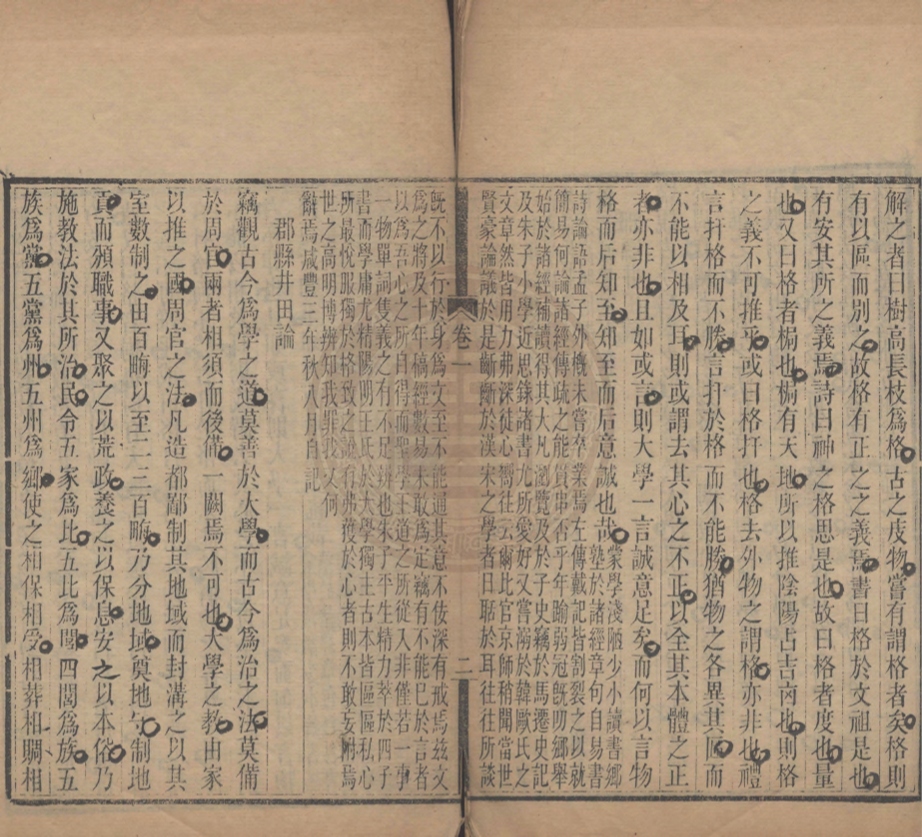 解之者曰樹高長枝爲格古以庋物嘗有謂格者矣格則
有以區而別之故格有正之之義焉書曰格於文祖是也
有安其所之義焉詩曰神之格思是也故曰格者度也量
也又曰格者梏也梏有天地所以推陰陽占吉凶也則格
之義不可推乎或曰格扞也格去外物之謂格亦非也禮
言扞格而不勝言扞於格而不能勝猶物之各異其而
不能以相及耳則或謂去其心之不正以全其本體之正
者亦非也且如或言則大學一言誠意足矣而何以言物
格而后知至知至而后意誠也哉
蒙學淺陋少小讀書鄉塾於諸經章句自易書
詩論語孟子外槪未嘗卒業焉左傳戴記皆割裂之以就
簡易何論諸經傳疏之能貫串否乎年踰弱冠旣叨鄉舉
始於諸經補讀得其大凡瀏覽及於子史竊於馬遷史記
及朱子小學近思錄諸書尤所愛好又嘗溺於韓歐氏之
文章然皆用力弗深徒心嚮往云爾比官京師稍聞當世
賢豪論議於是齗齗於漢宋之學者日聒於耳往往所談
旣不以行於身爲文至不能通其意不佞深有戒焉茲文
爲之將及十年稿經數易未敢爲定竊有不能已於言者
以爲吾心之所自得而聖學王道之所從入非僅若一事
一物單詞隻義之有不足辨也朱子平生精力萃於四子
書而學庸尤精陽明王氏於大學獨主古本皆區區私心
所最悅服獨於格致之說有弗獲於心者則不敢妄附焉
世之高明博辨知我罪我又何
辭焉咸豐三年秋八月自記
卷二
二
郡縣井田論
竊觀古今爲學之道莫善於大學而古今爲治之法莫備
於周官兩者相須而後備一闕焉不可也大學之教由家
以推之國周官之法凡造都鄙制其地域而封溝之以其
室數制之由百畮以至二三百畮乃分地域奠地守制地
貢而頒職事又聚之以荒政養之以保息安之以本俗乃
施教法於其所治民令五家爲比五比爲閭四閭爲族五
族爲黨五黨爲州五州爲鄉使之相保相受相葬相賙相